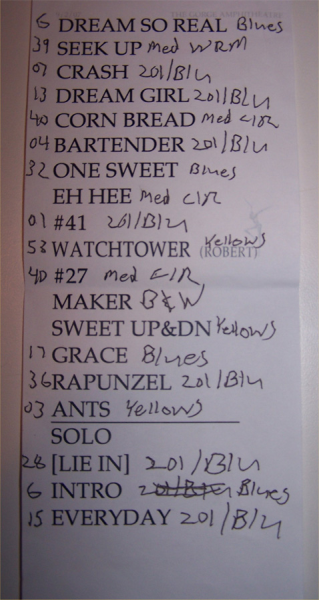 THE GORGE AMPHITHEATRE
6 DREAM SO REAL Blues
39 SEEK UP med WRM
07 CRASH 201/Blu
13 DREAM GIRL 201/Blu
40 CORN BREAD med CLR
04 BARTENDER 201/Blu
32 ONE SWEET Blues
EH HEE med CLR
01 #41 201/Blu
53 WATCHTOWER Yellows
(ROBERT)
40 #27 med CLR
MAKER B&W
SWEET UP&DN Yellows
17 GRACE Blues
36 RAPUNZEL 201/Blu
03 ANTS Yellows
SOLO
28 [LIE IN] 201/Blu
6 INTRO Blues
15 EVERYDAY 201/Blu